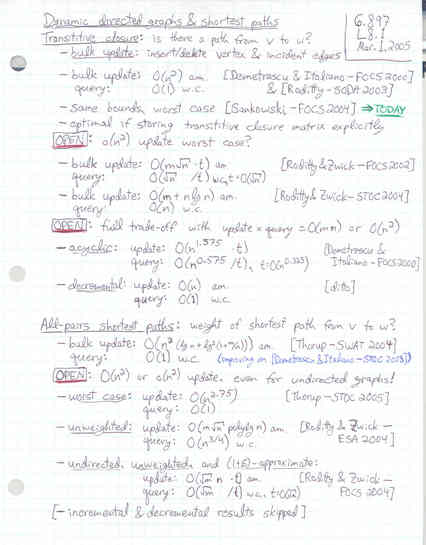 Dynamic directed graphs & shortest paths
6.897
L8.1
Mar. 1, 2005
Transitive closure: is there a path from v to w?
– bulk update: insert/delete vertex & incident edges
– bulk update: O(n²) am. [Demetrescu & Italiano – FOCS 2000]
query: O(1) w.c. & [Roditty – SODA 2003]
– same bounds, worst case [Sankowski – FOCS 2004] ⇒ TODAY
– optimal if storing transitive closure matrix explicitly
OPEN: o(n²) update worst case?
– bulk update: O(m√n · t) am. [Roditty & Zwick – FOCS 2002]
query: O(√n / t) w.c., t = O(√n)
– bulk update: O(m + n lg n) am. [Roditty & Zwick – STOC 2004]
query: O(n) w.c.
OPEN: full trade-off with update × query = O(mn) or O(n²)
– acyclic: update: O(n^1.575 · t) [Demetrescu &
query: O(n^0.575 / t), t = O(n^0.425) Italiano – FOCS 2000]
– decremental: update: O(n) am. [ditto]
query: O(1) w.c.
All-pairs shortest paths: weight of shortest path from v to w?
– bulk update: O(n² (lg n + lg²(1+m/n))) am. [Thorup – SWAT 2004]
query: O(1) w.c. (improving on [Demetrescu & Italiano – STOC 2003])
OPEN: O(n²) or o(n²) update, even for undirected graphs!
– worst case: update: O(n^2.75) [Thorup – STOC 2005]
query: O(1)
– unweighted: update: O(m√n polylg n) am. [Roditty & Zwick –
query: O(n^3/4) w.c. ESA 2004]
– undirected, unweighted, and (1+ε)-approximate:
update: O(√m n · t) am. [Roditty & Zwick –
query: O(√m / t) w.c., FOCS 2004]
[– incremental & decremental results skipped]